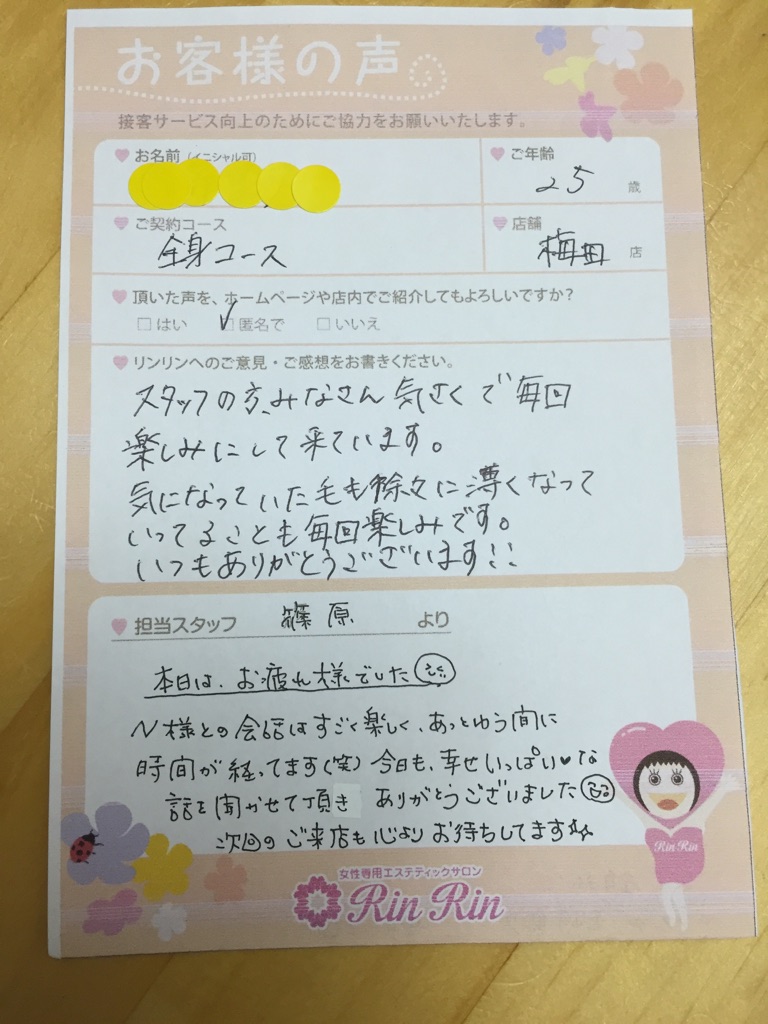 お客様の声
接客サービス向上のためにご協力をお願いいたします。
お名前（イニシャル可）
ご年齢
25 歳
ご契約コース
全身コース
店舗
梅田 店
頂いた声を、ホームページや店内でご紹介してもよろしいですか？
□はい ☑匿名で □いいえ
リンリンへのご意見・ご感想をお書きください。
スタッフの方、みなさん気さくで毎回
楽しみにして来ています。
気になっていた毛も徐々に薄くなって
いってることも毎回楽しみです。
いつもありがとうございます!!
担当スタッフ 篠原 より
本日は、お疲れ様でした
N様との会話はすごく楽しく、あっとゆう間に
時間が経ってます(笑)今日も、幸せいっぱい♥な
話を聞かせて頂き ありがとうございました
次回のご来店も心よりお待ちしてます☆
Rin Rin
女性専用エステティックサロン
Rin Rin